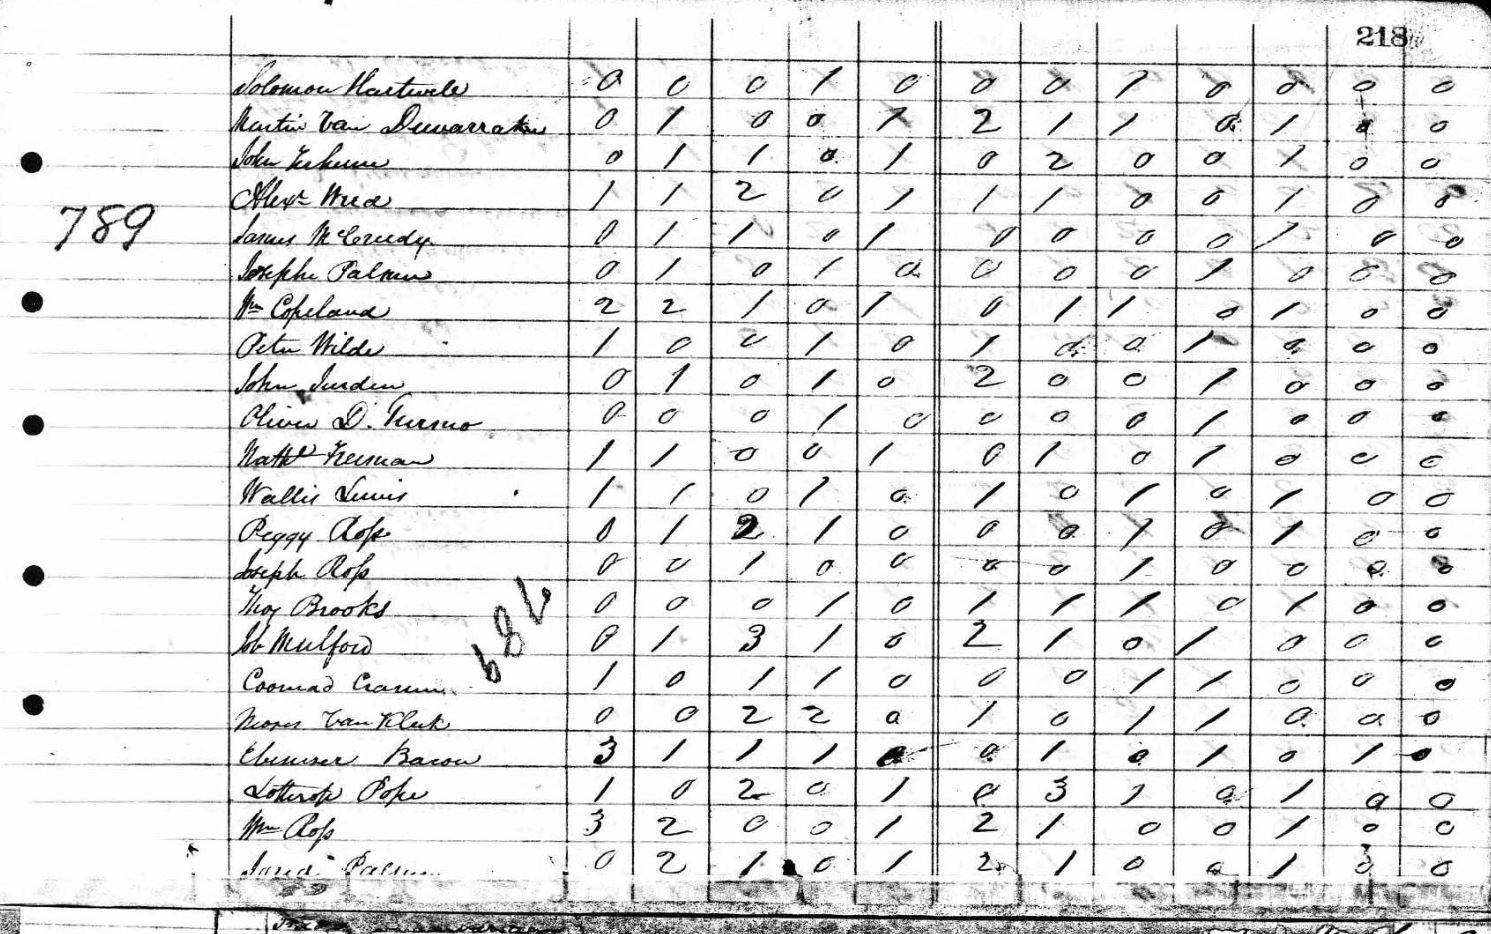 218
Solomon Hartwell 0 0 0 1 0 0 0 1 0 0 0 0
Martin Van Duwarraken 0 1 0 0 1 2 1 1 0 1 0 0
John Terhune 0 1 1 0 1 0 2 0 0 1 0 0
Alexr Weed 1 1 2 0 1 1 1 0 0 1 0 0
789
James McCredy 0 1 1 0 1 0 0 0 0 1 0 0
Josephe Palmer 0 1 0 1 0 0 0 0 1 0 0 0
Wm Copeland 2 2 1 0 1 0 1 1 0 1 0 0
Peter Wilde 1 0 0 1 0 1 0 0 1 0 0 0
John 0 1 0 1 0 2 0 0 1 0 0 0
Oliver D. 0 0 0 1 0 0 0 0 1 0 0 0
Nathl Freeman 1 1 0 0 1 0 1 0 1 0 0 0
Wallis Lewis 1 1 0 1 0 1 0 1 0 1 0 0
Peggy Ross 0 1 2 1 0 0 0 1 0 1 0 0
Joseph Ross 0 0 1 0 0 0 0 1 0 0 0 0
Thos Brooks 0 0 0 1 0 1 1 1 0 1 0 0
789
Job Mulford 0 1 3 1 0 2 1 0 1 0 0 0
Coonrad 1 0 1 1 0 0 0 1 1 0 0 0
Moses Van Kleek 0 0 2 2 0 1 0 1 1 0 0 0
Ebenezer Bacon 3 1 1 1 0 0 1 0 1 0 1 0
Lothrop Pope 1 0 2 0 1 0 3 1 0 1 0 0
Wm Ross 3 2 0 0 1 2 1 0 0 1 0 0
Jared Palmer 0 2 1 0 1 2 1 0 0 1 0 0